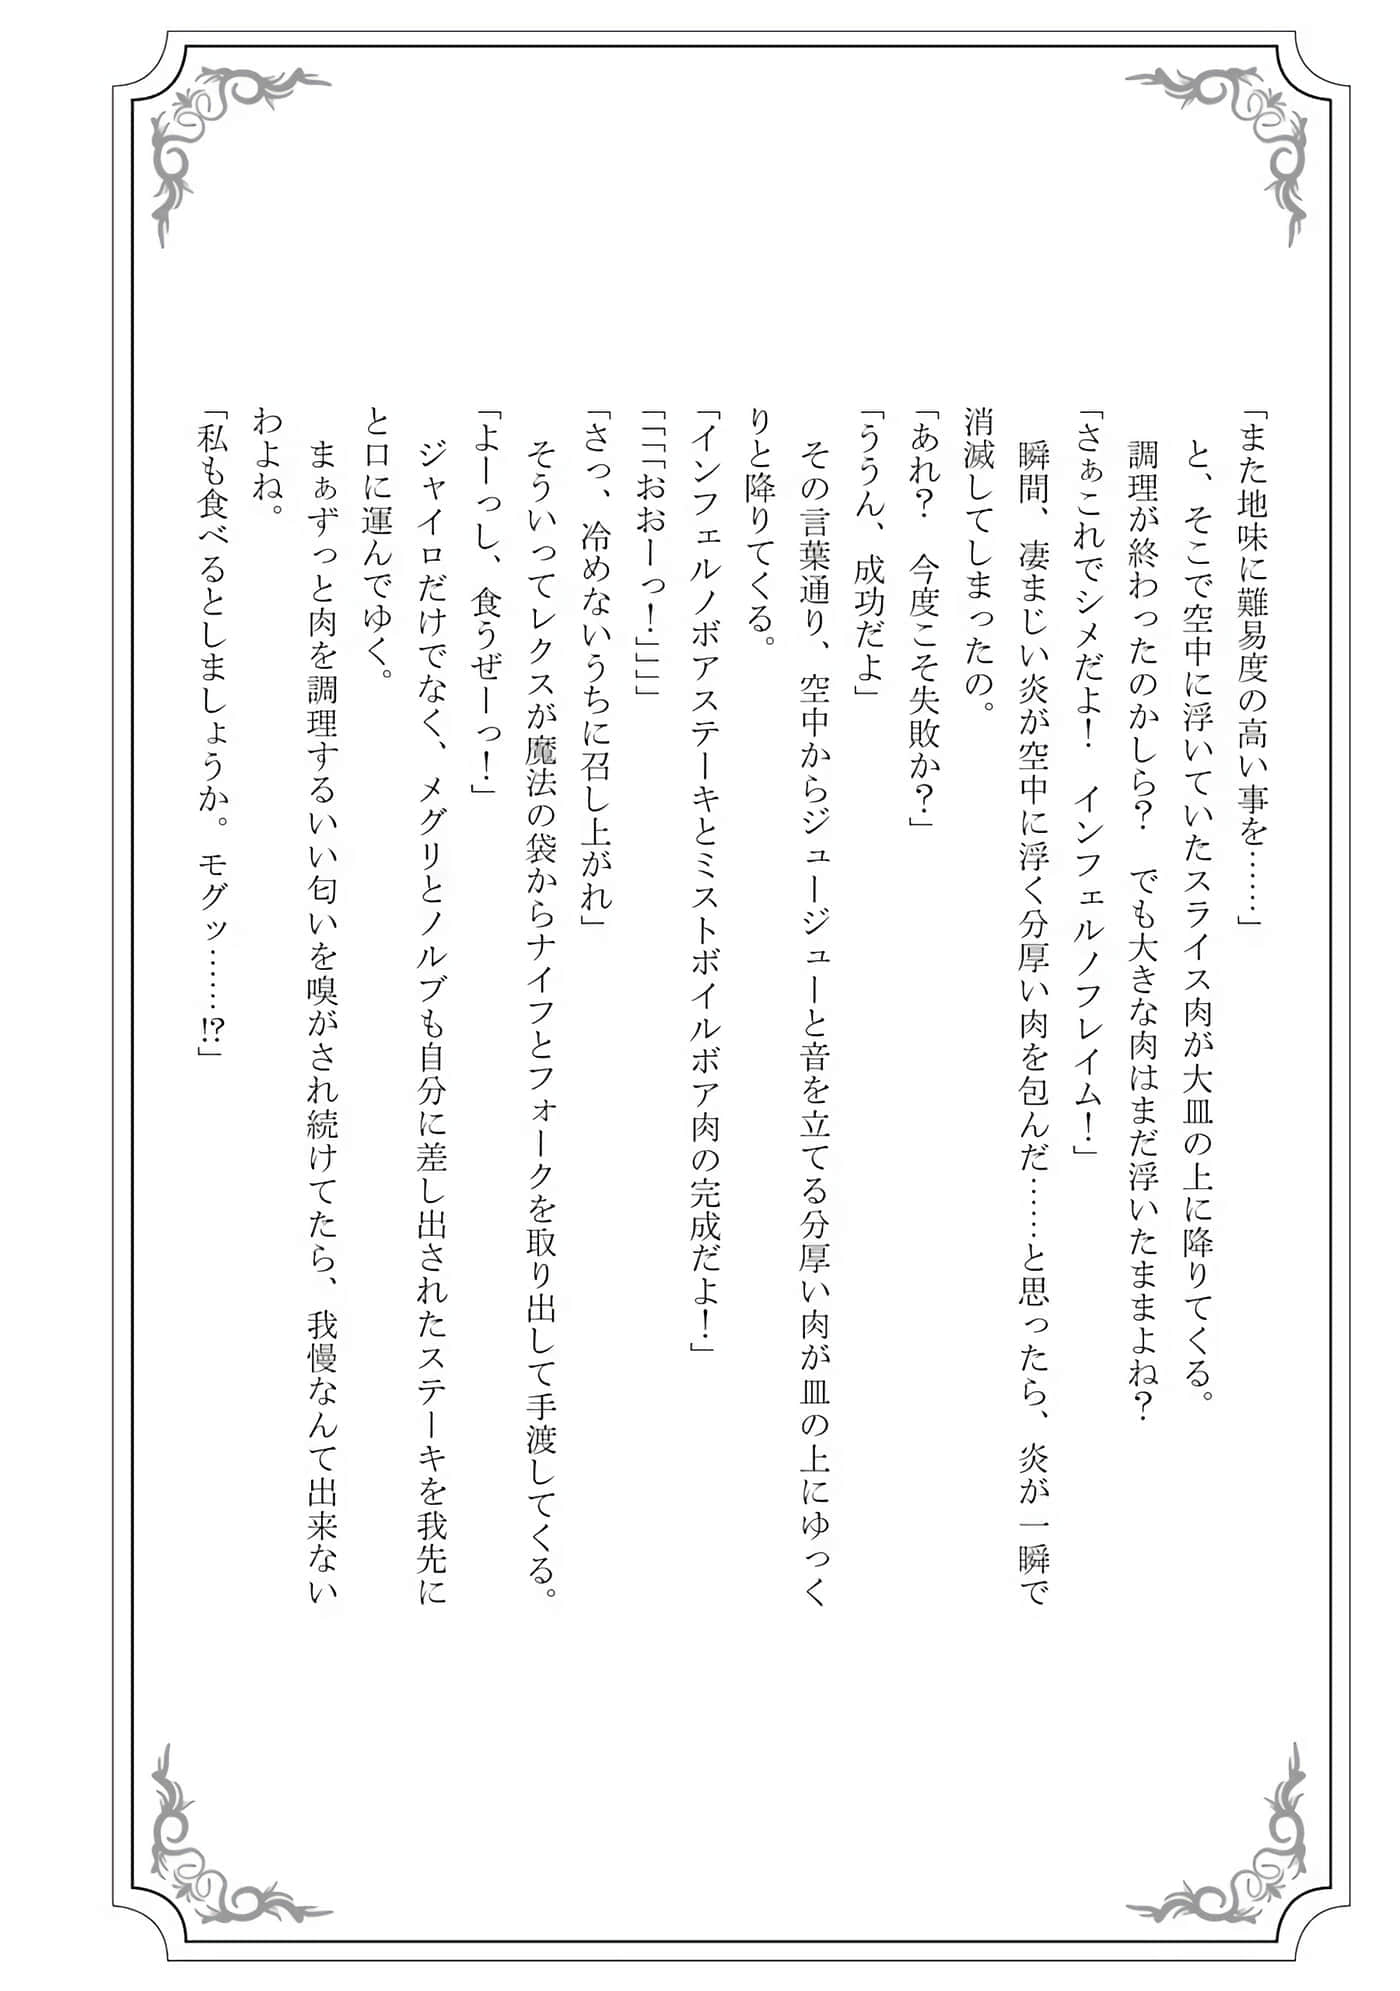 「また地味に難易度の高い事を……」
　と、そこで空中に浮いていたスライス肉が大皿の上に降りてくる。
　調理が終わったのかしら？　でも大きな肉はまだ浮いたままよね？
「さぁこれでシメだよ！　インフェルノフレイム！」
　瞬間、凄まじい炎が空中に浮く分厚い肉を包んだ……と思ったら、炎が一瞬で
消滅してしまったの。
「あれ？　今度こそ失敗か？」
「ううん、成功だよ」
　その言葉通り、空中からジュージューと音を立てる分厚い肉が皿の上にゆっく
りと降りてくる。
「インフェルノボアステーキとミストボイルボア肉の完成だよ！」
「「「「おおーっ！」」」」
「さっ、冷めないうちに召し上がれ」
　そういってレクスが魔法の袋からナイフとフォークを取り出して手渡してくる。
「よーっし、食うぜーっ！」
　ジャイロだけでなく、メグリとノルブも自分に差し出されたステーキを我先に
と口に運んでゆく。
　まぁずっと肉を調理するいい匂いを嗅がされ続けてたら、我慢なんて出来ない
わよね。
「私も食べるとしましょうか。モグッ……!?」